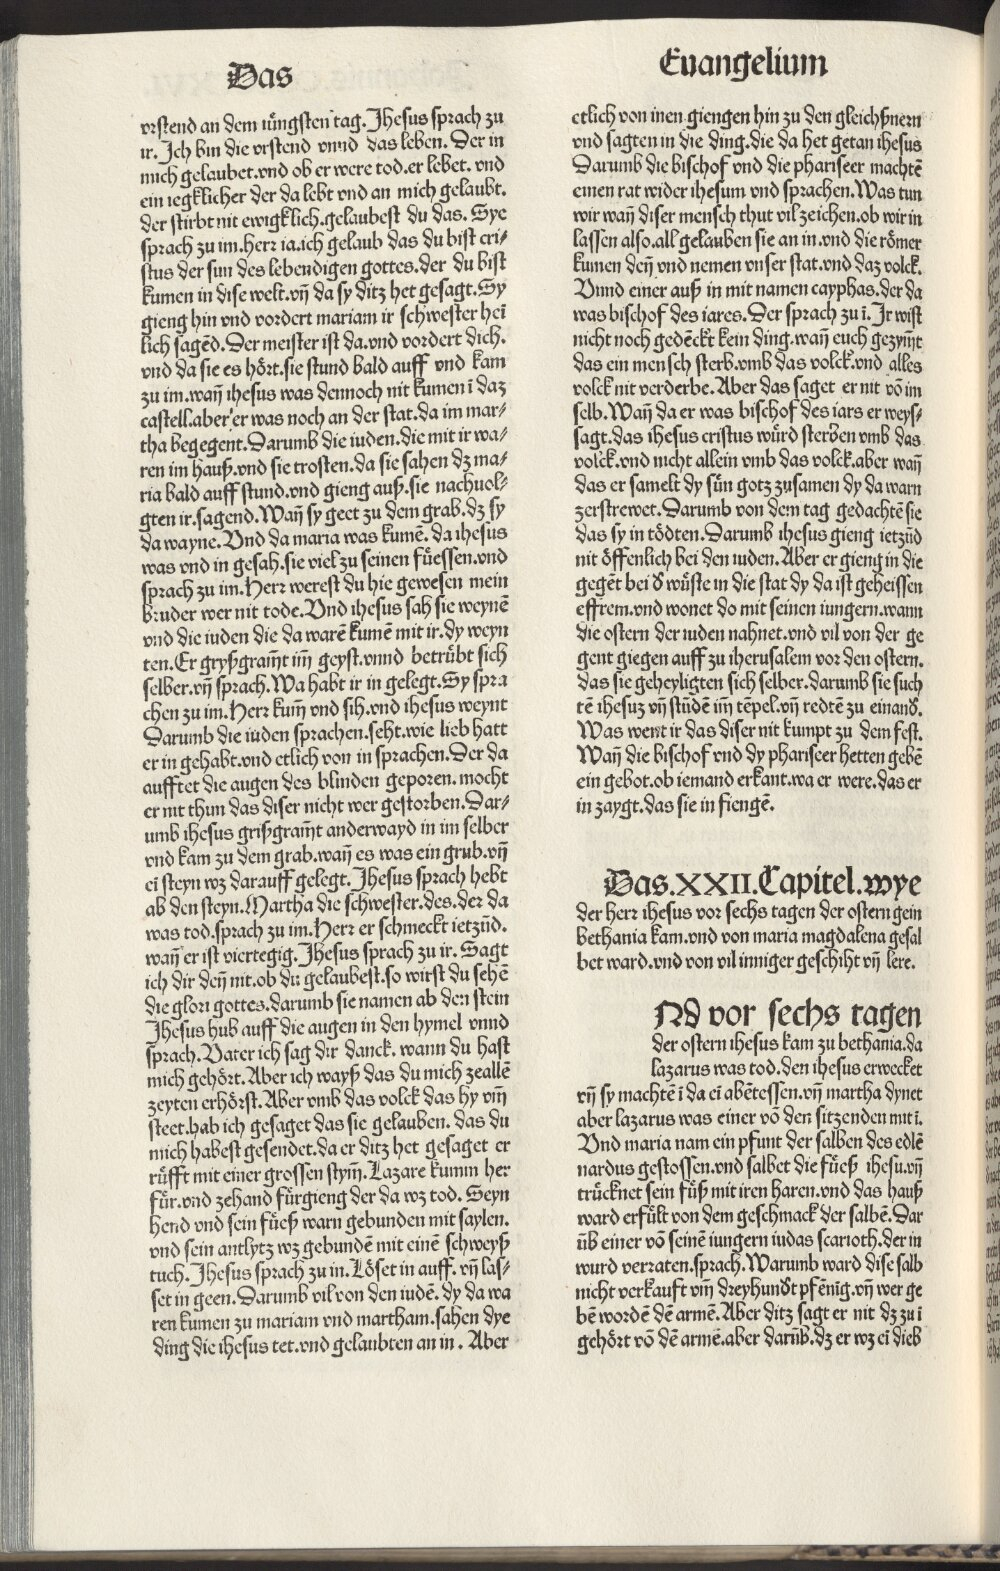 Das
Euangelium
vrstend an dem iüngsten tag. Jhesus sprach zu
ir. Ich bin die vrstend vnnd das leben. Der in
mich gelaubet. vnd ob er were tod. er lebet. vnd
ein iegklicher der da lebt vnd an mich gelaubt.
der stirbt nit ewigklich. gelaubest du das. Sye
sprach zu im. herr ia. ich gelaub das du bist cri⸗
stus der sun des lebendigen gottes. der du bist
kumen in dise welt. vñ da sy ditz het gesagt. Sy
gieng hin vnd vordert mariam ir schwester heī
lich sagēd. Der meister ist da. vnd vordert dich.
vnd da sie es hört. sie stund bald auff vnd kam
zu im. wañ ihesus was dennoch nit kumen ī daz
castell. aber er was noch an der stat. da im mar⸗
tha begegent. Darumb die iuden. die mit ir wa⸗
ren im hauß. vnd sie trosten. da sie sahen dz ma⸗
ria bald auff stund. vnd gieng auß. sie nachuol⸗
gten ir. sagend. Wañ sy geet zu dem grab. dz sy
da wayne. Vnd da maria was kumē. da ihesus
was vnd in gesah. sie viel zu seinen füessen. vnd
sprach zu im. Herr werest du hie gewesen mein
bruder wer nit tode. Vnd ihesus sah sie weynē
vnd die iuden die da warē kumē mit ir. dy weyn
ten. Er gryßgram̃t im̃ geyst. vnnd betrübt sich
selber. vñ sprach. Wa habt ir in gelegt. Sy spra
chen zu im. Herr kum̃ vnd sih. vnd ihesus weynt
Darumb die iuden sprachen. seht. wie lieb hatt
er in gehabt. vnd etlich von in sprachen. Der da
aufftet die augen des blinden geporen. mocht
er nit thun das diser nicht wer gestorben. Dar⸗
umb ihesus grißgram̃t anderwayd in im selber
vnd kam zu dem grab. wañ es was ein grub. vñ
eī steyn wz darauff gelegt. Jhesus sprach hebt
ab den steyn. Martha die schwester. des. der da
was tod. sprach zu im. Herr er schmeckt ietzūd.
wañ er ist viertegig. Jhesus sprach zu ir. Sagt
ich dir deñ nit. ob du gelaubest. so wirst du sehē
die glori gottes. darumb sie namen ab den stein
Jhesus hub auff die augen in den hymel vnnd
sprach. Vater ich sag dir danck. wann du hast
mich gehört. Aber ich wayß das du mich zeallē
zeyten erhörst. Aber vmb das volck das hy vm̃
steet. hab ich gesaget das sie gelauben. das du
mich habest gesendet. da er ditz het gesaget er
rüfft mit einer grossen stym̃. Lazare kumm her
für. vnd zehand fürgieng der da wz tod. Seyn
hend vnd sein füeß warn gebunden mit saylen.
vnd sein antlytz wz gebundē mit einē schweyß
tuch. Jhesus sprach zu in. Löset in auff. vñ las⸗
set in geen. Darumb vil von den iudē. dy da wa
ren kumen zu mariam vnd martham. sahen dye
ding die ihesus tet. vnd gelaubten an in. Aber
etlich von inen giengen hin zu den gleichßnern
vnd sagten in die ding. die da het getan ihesus
Darumb die bischof vnd die phariseer machtē
einen rat wider ihesum vnd sprachen. Was tun
wir wañ diser mensch thut vil zeichen. ob wir in
lassen also. all gelauben sie an in. vnd die römer
kumen deñ vnd nemen vnser stat. vnd daz volck.
Vnnd einer auß in mit namen cayphas. der da
was bischof des iares. Der sprach zu ī. Ir wist
nicht noch gedēckt kein ding. wañ euch gezym̃t
das ein mensch sterb. vmb das volck. vnd alles
volck nit verderbe. Aber das saget er nit vō im
selb. Wañ da er was bischof des iars er weys⸗
sagt. das ihesus cristus würd sterben vmb das
volck. vnd nicht allein vmb das volck. aber wañ
das er samelt dy sün gotz zusamen dy da warn
zerstrewet. Darumb von dem tag gedachtē sie
das sy in tödten. Darumb ihesus gieng ietzūd
nit öffenlich bei den iuden. Aber er gieng in die
gegēt bei d̕ wüste in die stat dy da ist geheissen
effrem. vnd wonet do mit seinen iungern. wann
die ostern der iuden nahnet. vnd vil von der ge
gent giegen auff zu iherusalem vor den ostern.
das sie geheyligten sich selber. darumb sie such
tē ihesuz vñ stūdē im̃ tēpel. vñ redtē zu einand̕.
Was wenet ir das diser nit kumpt zu dem fest.
Wañ die bischof vnd dy phariseer hetten gebē
ein gebot. ob iemand erkant. wa er were. das er
in zaygt. das sie in fiengē.
Das. XXII. Capitel. wye
der herr ihesus vor sechs tagen der ostern gein
bethania kam. vnd von maria magdalena gesal
bet ward. vnd von vil inniger geschiht vñ lere.
Nd vor sechs tagen
der ostern ihesus kam zu bethania. da
lazarus was tod. den ihesus erwecket
vñ sy machtē ī da eī abētessen. vñ martha dynet
aber lazarus was einer vō den sitzenden mit ī.
Vnd maria nam ein pfunt der salben des edlē
nardus gestossen. vnd salbet die füeß ihesu. vñ
trücknet sein füß mit iren haren. vnd das hauß
ward erfült von dem geschmack der salbē. Dar
üb einer vō seinē iungern iudas scarioth. der in
wurd verraten. sprach. Warumb ward dise salb
nicht verkauft vm̃ dreyhund̕t pfēnig. vñ wer ge
bē wordē dē armē. Aber ditz sagt er nit dz zu ī
gehört vō dē armē. aber darūb. dz er wz eī dieb